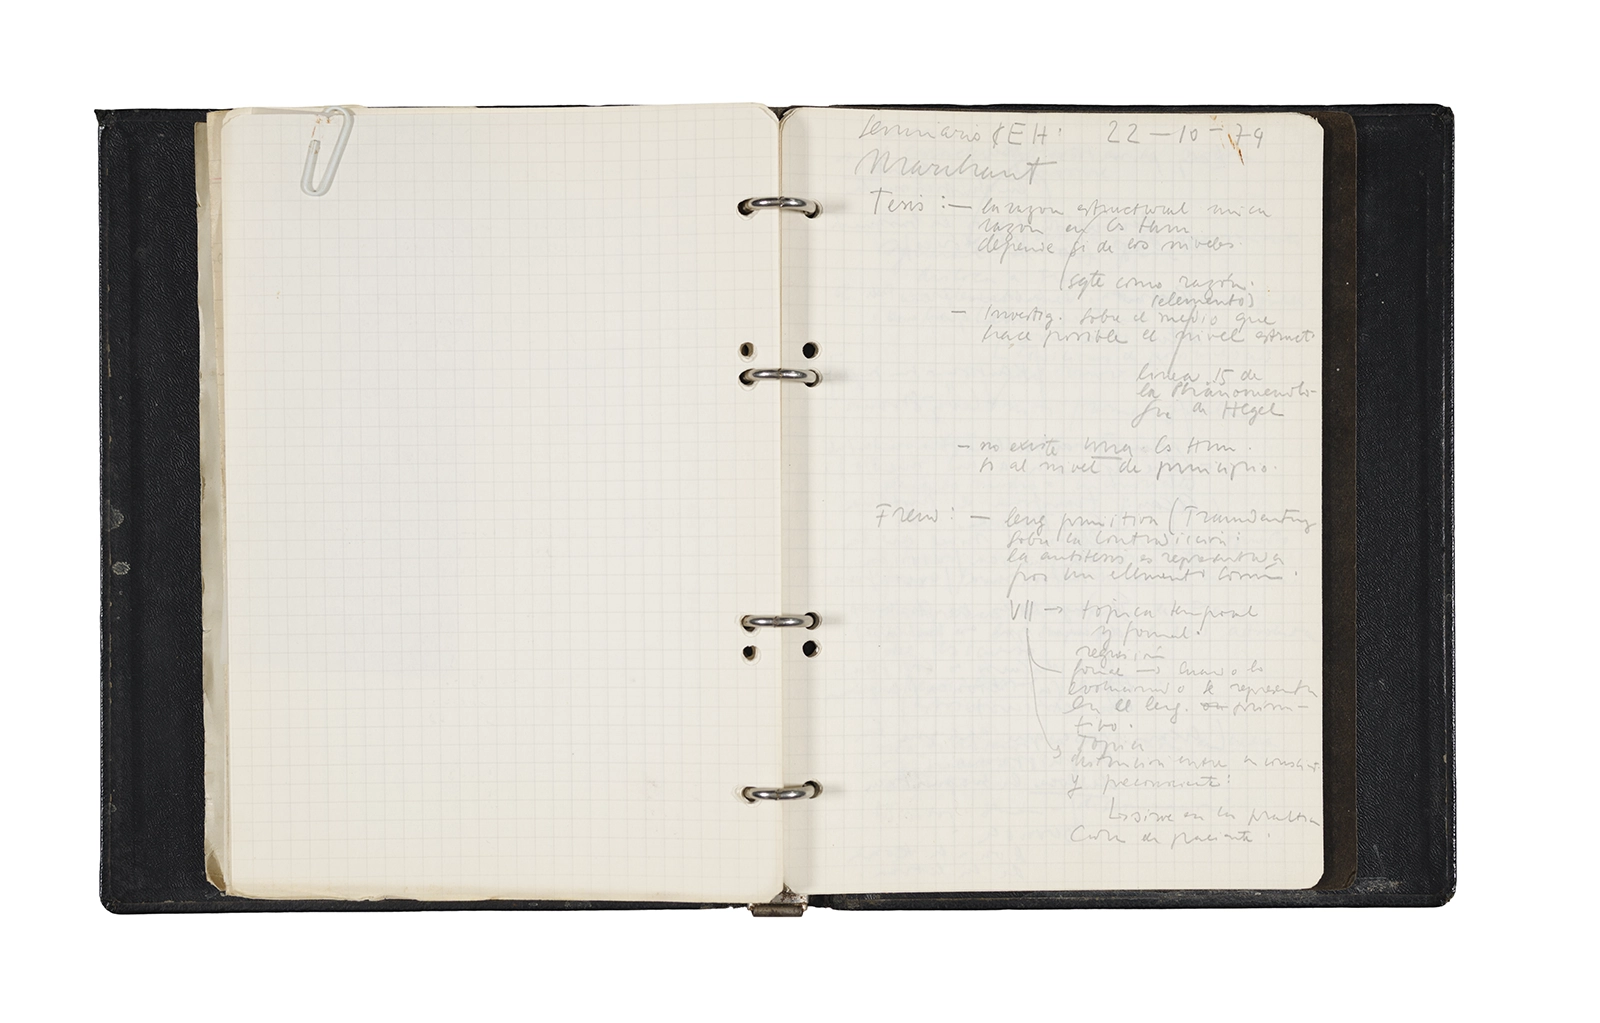 Seminario CEH: 22-10-74
Marchant
Tesis: - la razon estructural unica
razon en Cs Hum
depende fi de los niveles.
(sgte como razón.
(elemento)
- Investig. sobre el medio que
hace posible el nivel estruct.
linea 15 de
la Phänomenolo-
gie de Hegel
- no existe una Cs Hum.
si al nivel de principio.
Freud: - leng primitivo (Traumdeutung
sobre la contradicción:
la antitesis es representada
por un elemento común.
VII → tópica temporal
y formal.
regresión
→ cuando lo
evolucionado se representa
en el leng. primi-
tivo.
Topica
distincion entre inconsciente
y preconsciente:
en la practica
de paciente.